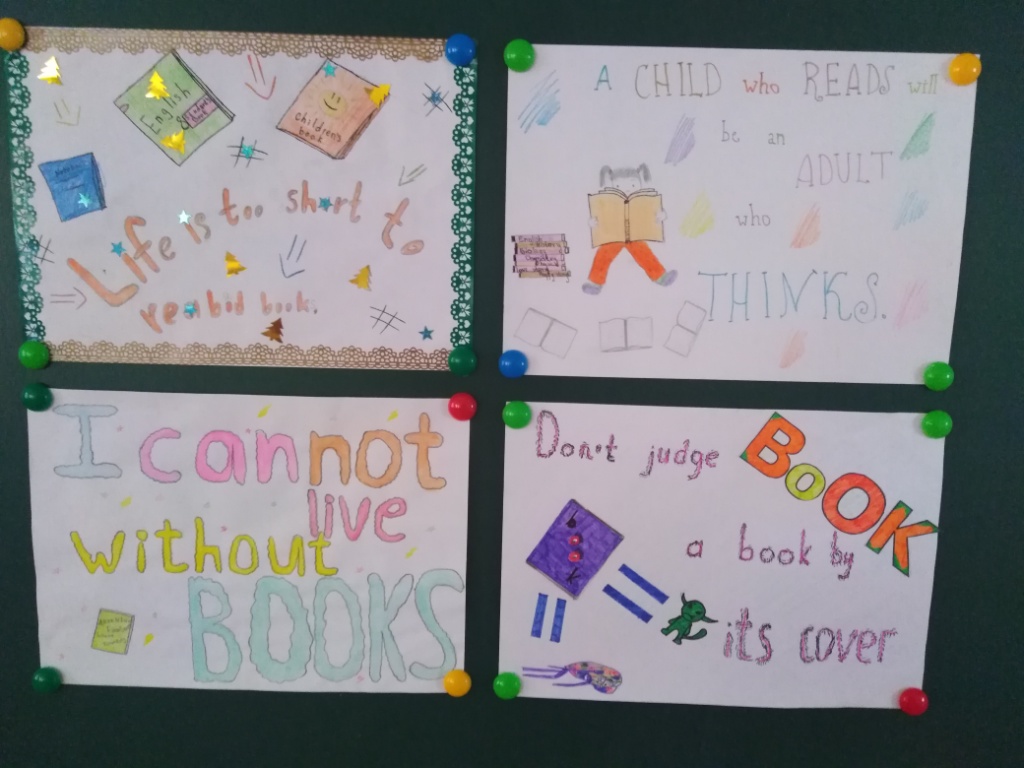 English
&
children's
book
Life is too short to
read bad book.
A CHILD who READS will
be an
ADULT
who
THINKS.
English
I cannot
live
without
BOOKS
Don't judge
BOOK
book
a book by
its cover